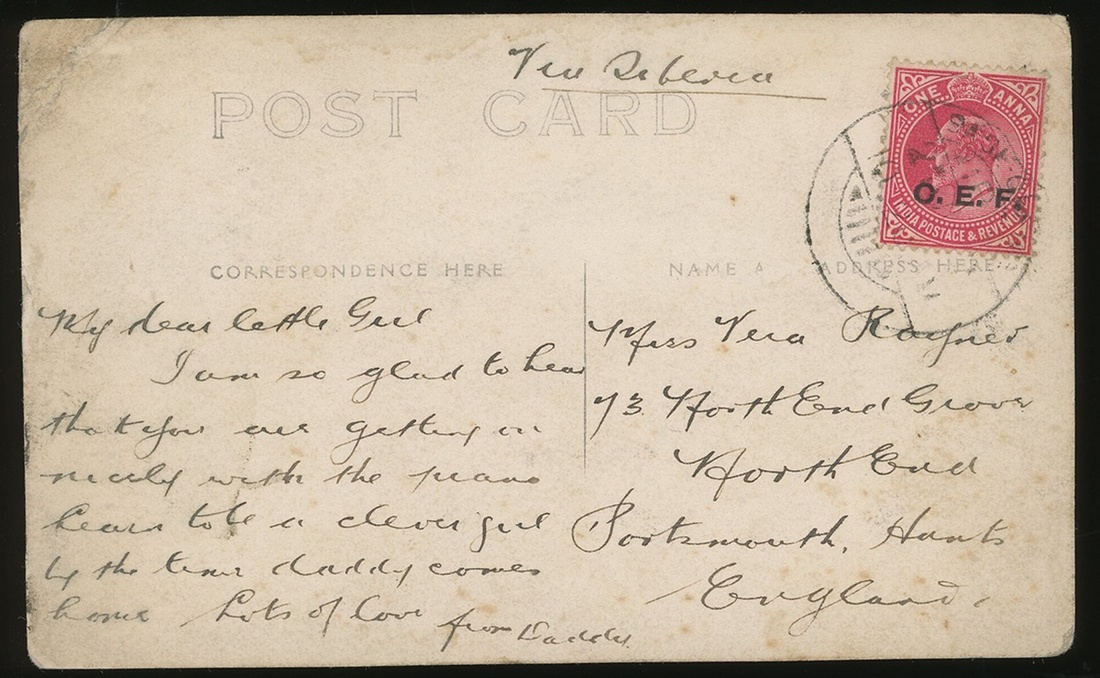 Via Siberia
POST CARD
ONE ANNA
C. E. F.
INDIA POSTAGE & REVENUE
CORRESPONDENCE HERE
NAME A ADDRESS HERE
My dear little Girl
I am so glad to hear
that you are getting on
nicely with the piano
learn to be a clever girl
by the time daddy comes
home Lots of love from Daddy.
Miss Vera Rayner
73 North End Grove
North End
Portsmouth, Hants
England,